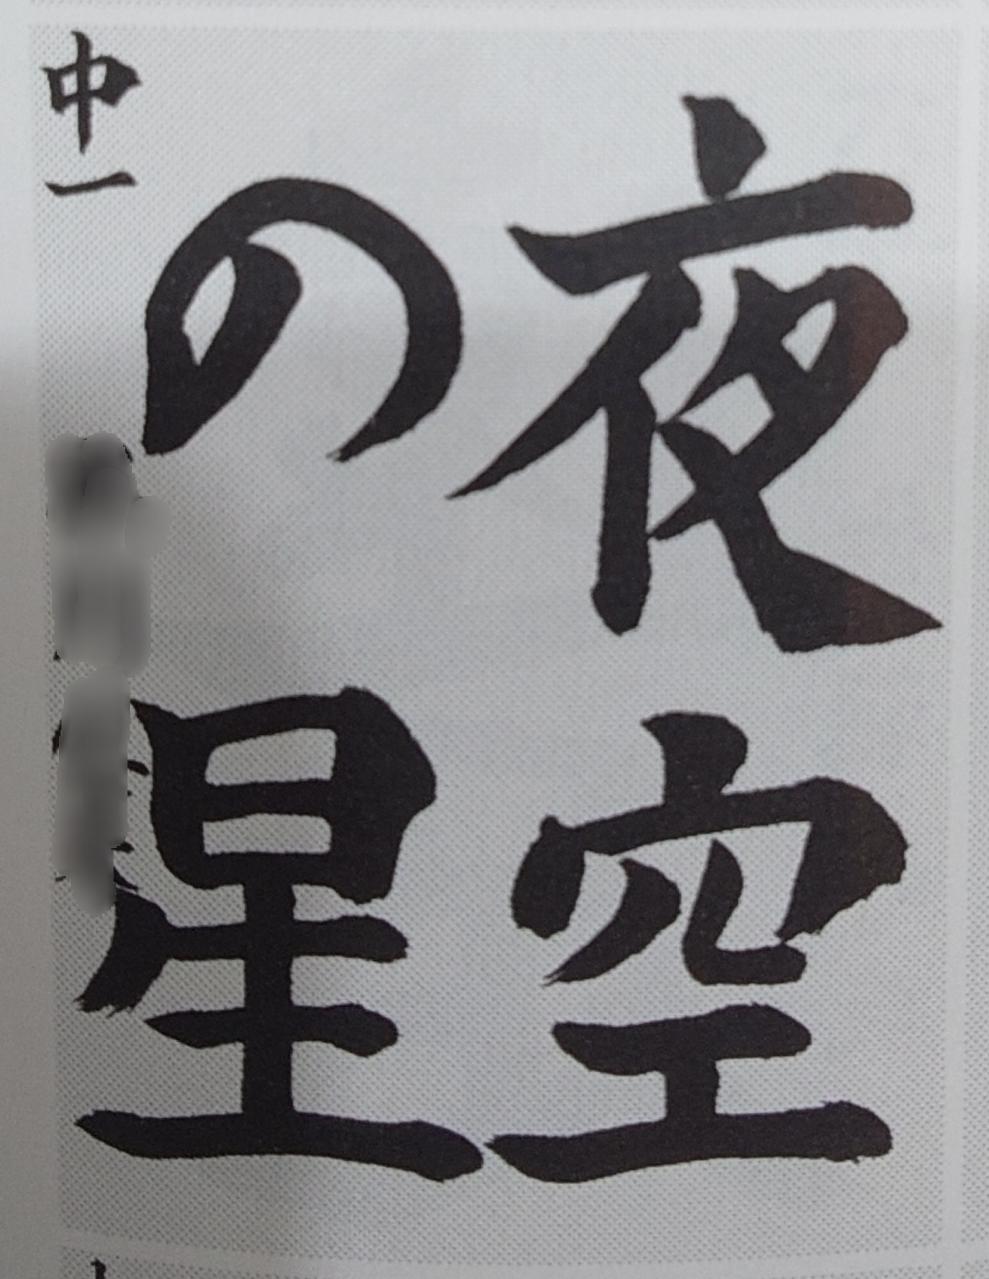 夜空
の星
中一